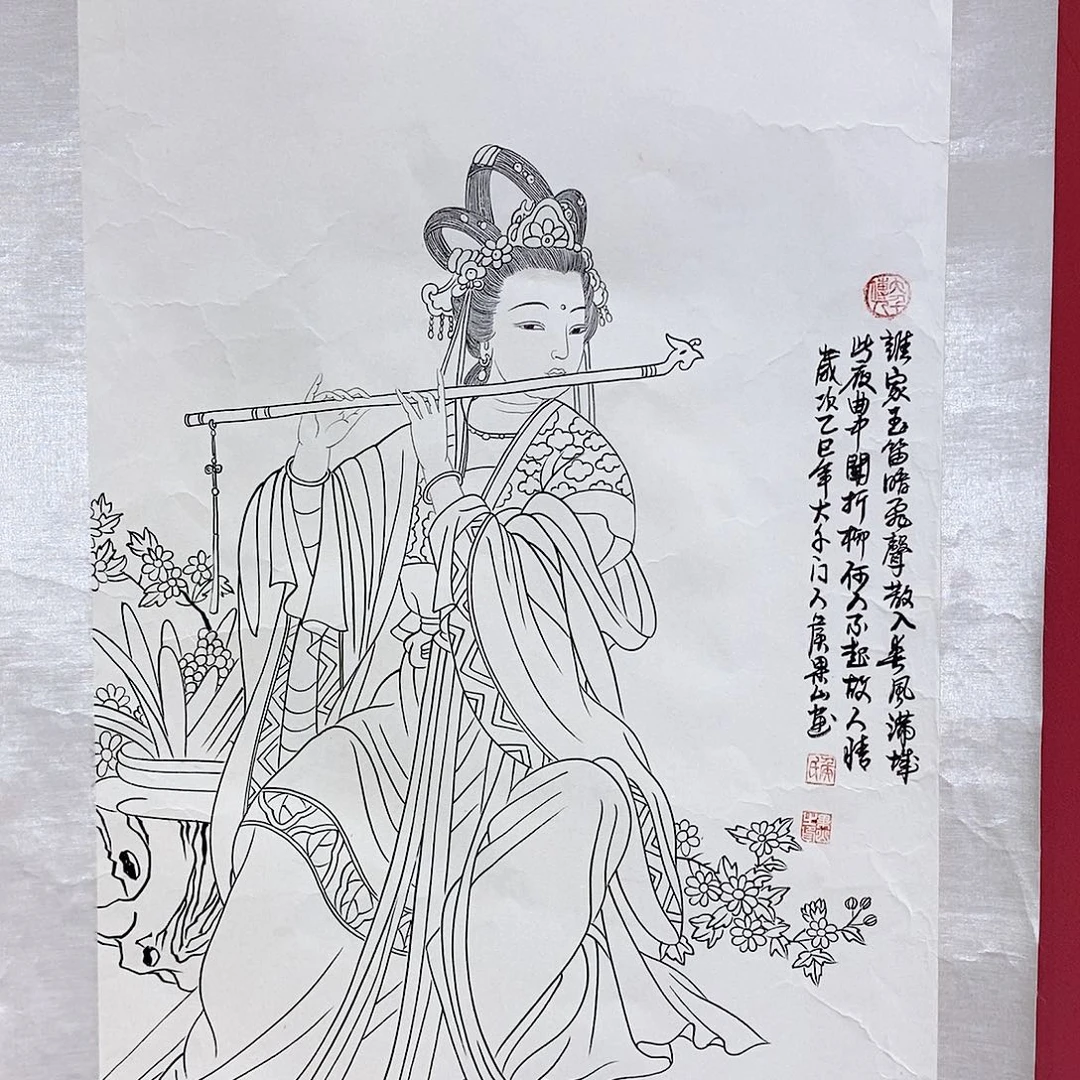 大千傳人
誰家玉笛暗飛聲散入春風滿城
此夜曲中聞折柳何人不起故人情
歲次乙巳年大千门人果山畫